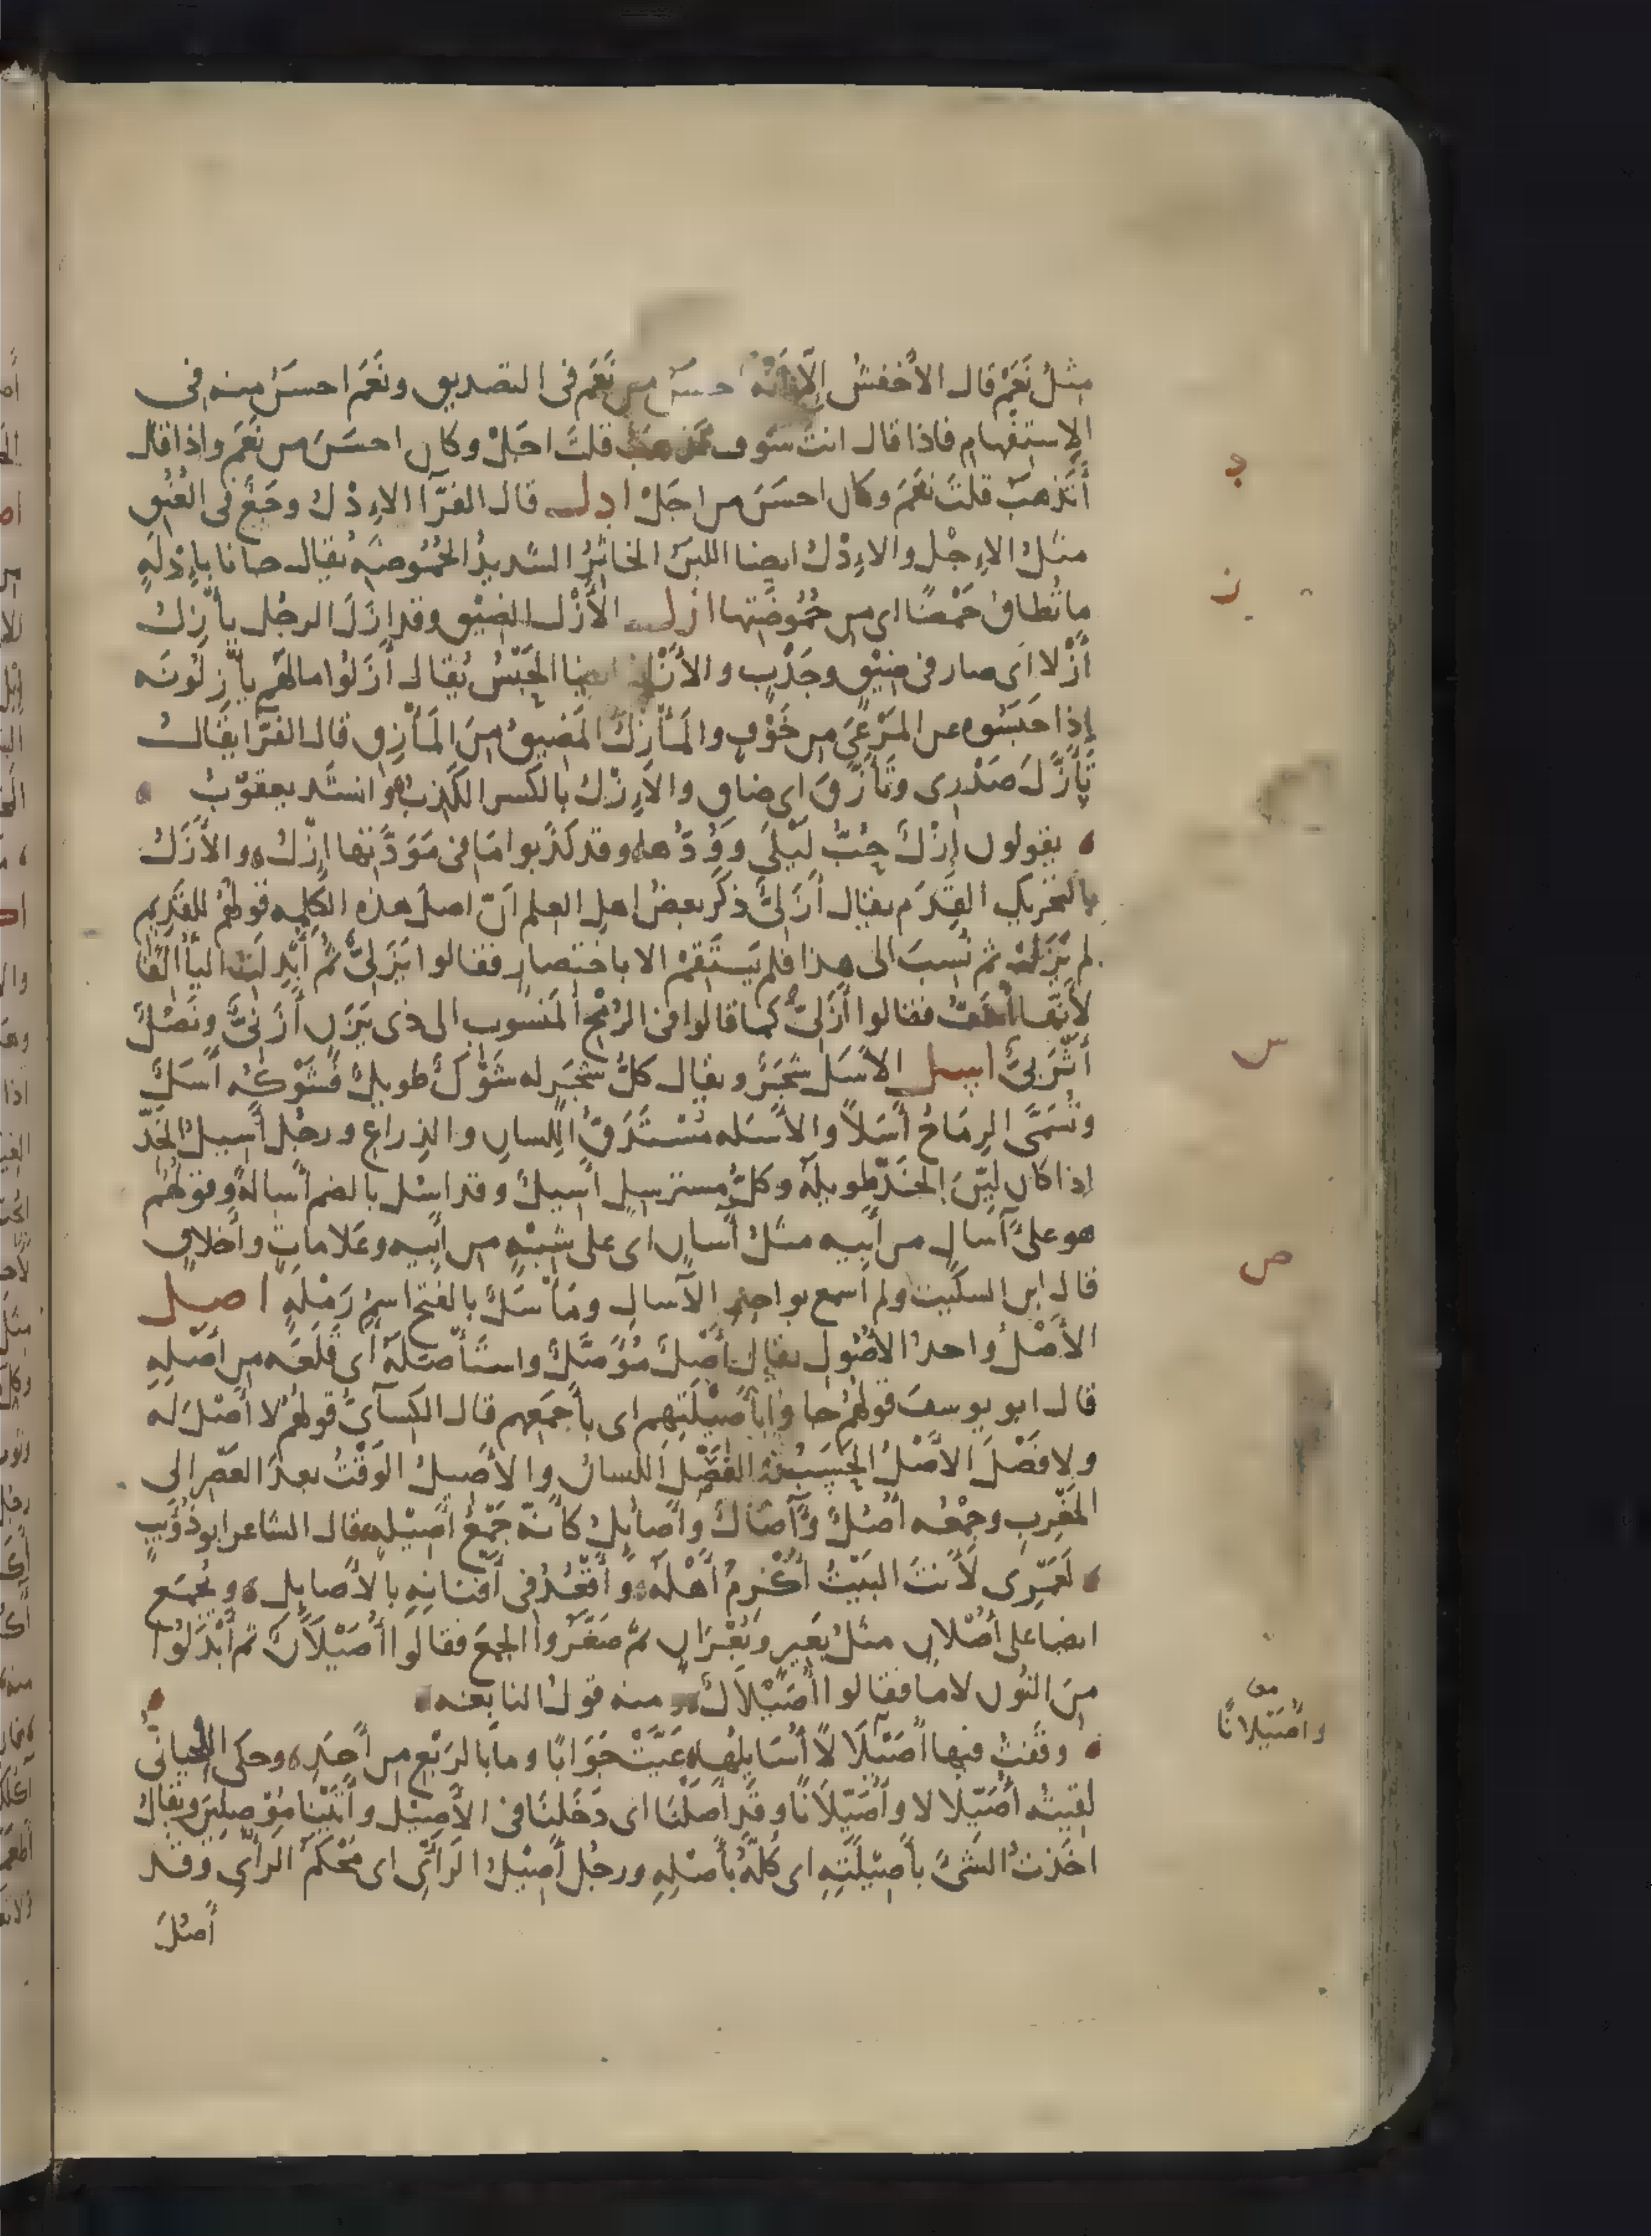 مثلُ نَعَمْ قال الأخفش إلّا أنّه احسَنُ من نَعَم فى التصديق ونَعَم احسَنُ منه فى
الاستفهام فاذا قال انت سَوف تذهب قلتَ اجَلْ وكان احسَنَ من نَعَم واذا قال
أتَذهبُ قلتَ نعَم وكان احسَنَ من اجَلْ ادل قال الفرّآ الاِدْلُ وجَعٌ فى العُنُق
مثلُ الاِجْل والاِدْلُ ايضا اللبنُ الخاثِرُ الشديدُ الحُمُوضَهِ يُقال جانا بإدْلَهٍ
ما تُطاقُ حَمْضًا اى من حُمُوضَتِها ازل الأَزْل الضيْق وقد ازَلَ الرجُل يأزِلُ
أَزْلا اى صار فى ضِيْقٍ وجَدْبٍ والأَزْلُ ايضا الحَبْسُ يُقال أَزَلُوا مالهُم يأزِلُونَه
إذا حَبَسُوه عن المَرْعَى من خَوْفٍ والمَأزِلُ المَضِيقُ مِنَ المَأزِق قال الفرّا يقالُ
تَأَزَّلَ صَدْرِى وتَأَزَّقَ اى ضاق والاِزْلُ بالكسر الكَذِبُ وانشد يعقوْبُ
يقولون إزْلٌ حُبُّ لَيْلَى ووُدُّها وقد كَذَبوا مَا فى مَوَدَّتِها إزْلُ والأَزَلُ
بالتحريك القِدَم يقال أزَلىٌّ ذكَر بعضُ اهل العلم انّ اصلَ هذه الكلِمه قولهُمْ للقديم
لم يَزَلْ ثم نُسِبَ الى هذا فلم يَستَقِمْ الا باختصار فقالوا يَزَلىٌّ ثم أُبْدِلَت اليآ ألفًا
لأنها أخَفُّ فقالوا أَزَلىٌّ كما قالوا فى الرُمْحِ المَنسوبِ الى ذى يَزَن أَزَنىٌّ ونَصْلٌ
أَثْرَبىٌّ اسل الأسَل شجَرٌ ويقال كلُّ شجَرٍ له شَوْكٌ طويلٌ فشَوْكُه أَسَلٌ
وتُسَمَّى الرِماحُ أَسَلاً والأسَله مُسْتَدَقُّ اللسانِ والذِراعِ ورجُل أَسِيلُ الخَدّ
إذا كان ليّنَ الخَدّ طويلَه وكلُّ مسترسِلٍ أسِيلٌ وقد اسُل بالضم أَسالةً وقولهُم
هو على آسالٍ من أبيه مثلُ آسانٍ اى على شَبَهٍ من أبيه وعَلاماتٍ وأخلاقٍ
قال ابن السكّيت ولم اسمع بواحِدِ الآسال ومَأسَلٌ بالفتح اسمُ رَمْلَهٍ اصل
الأصْلُ واحدُ الأصُول يقال أَصْلٌ مُؤَصَّلٌ واستأصَلَهُ اى قَلَعَه من أَصْلِهِ
قال ابو يوسف قولهُمْ جاوا بأَصِيْلَتِهم اى بأجمَعِهم قال الكِسآئىُّ قولهُمْ لا أَصْلَ له
ولا فَصْلَ الأصْلُ الحَسَبُ والفَصْلُ اللسانُ والأصِيلُ الوَقْتُ بعدَ العَصْرِ الى
المَغْرِبِ وجمْعُه أُصُلٌ وآصالٌ وأصائِلُ كأنّه جَمْعُ أَصِيْلهٍ قال الشاعر ابو ذُؤَيب
لَعَمْرِى لَأنتَ البَيْتُ أُكْرِمُ أَهْلَهُ وأَقْعُدُ فى أَفنائِهِ بالأصايِلِ ويُجمَع
ايضا على أُصْلانٍ مثلُ بَعِيرٍ وبُعْرانٍ ثم صَغَّرُوا الجمعَ فقالوا أُصَيْلانٌ ثم أَبْدَلُوا
مِنَ النُونِ لامًا فقالوا أُصَيْلالٌ ومنه قولُ النابغه
وقَفْتُ فيها أُصَيْلالًا أُسَايِلُها عَيَّتْ جَوَابًا وما بالرَبْعِ من أَحَدِ وحكى اللحيانىُّ
لقيتُه أُصَيْلالا وأُصَيْلانًا وقد آصَلْنَا اى دَخَلنَا فى الأَصِيْل وأَتَيْنا مُؤْصِلِيْن ويُقال
اخَذتُ الشَىْءَ بأَصِيْلَتِهِ اى كُلَّهُ بأَصْلِهِ ورجُل أَصِيْلُ الرَأىِ اى مُحْكَمُ الرَأىِ وقَد
أَصُلَ
د
ز
س
ص
وأُصَيْلانًا